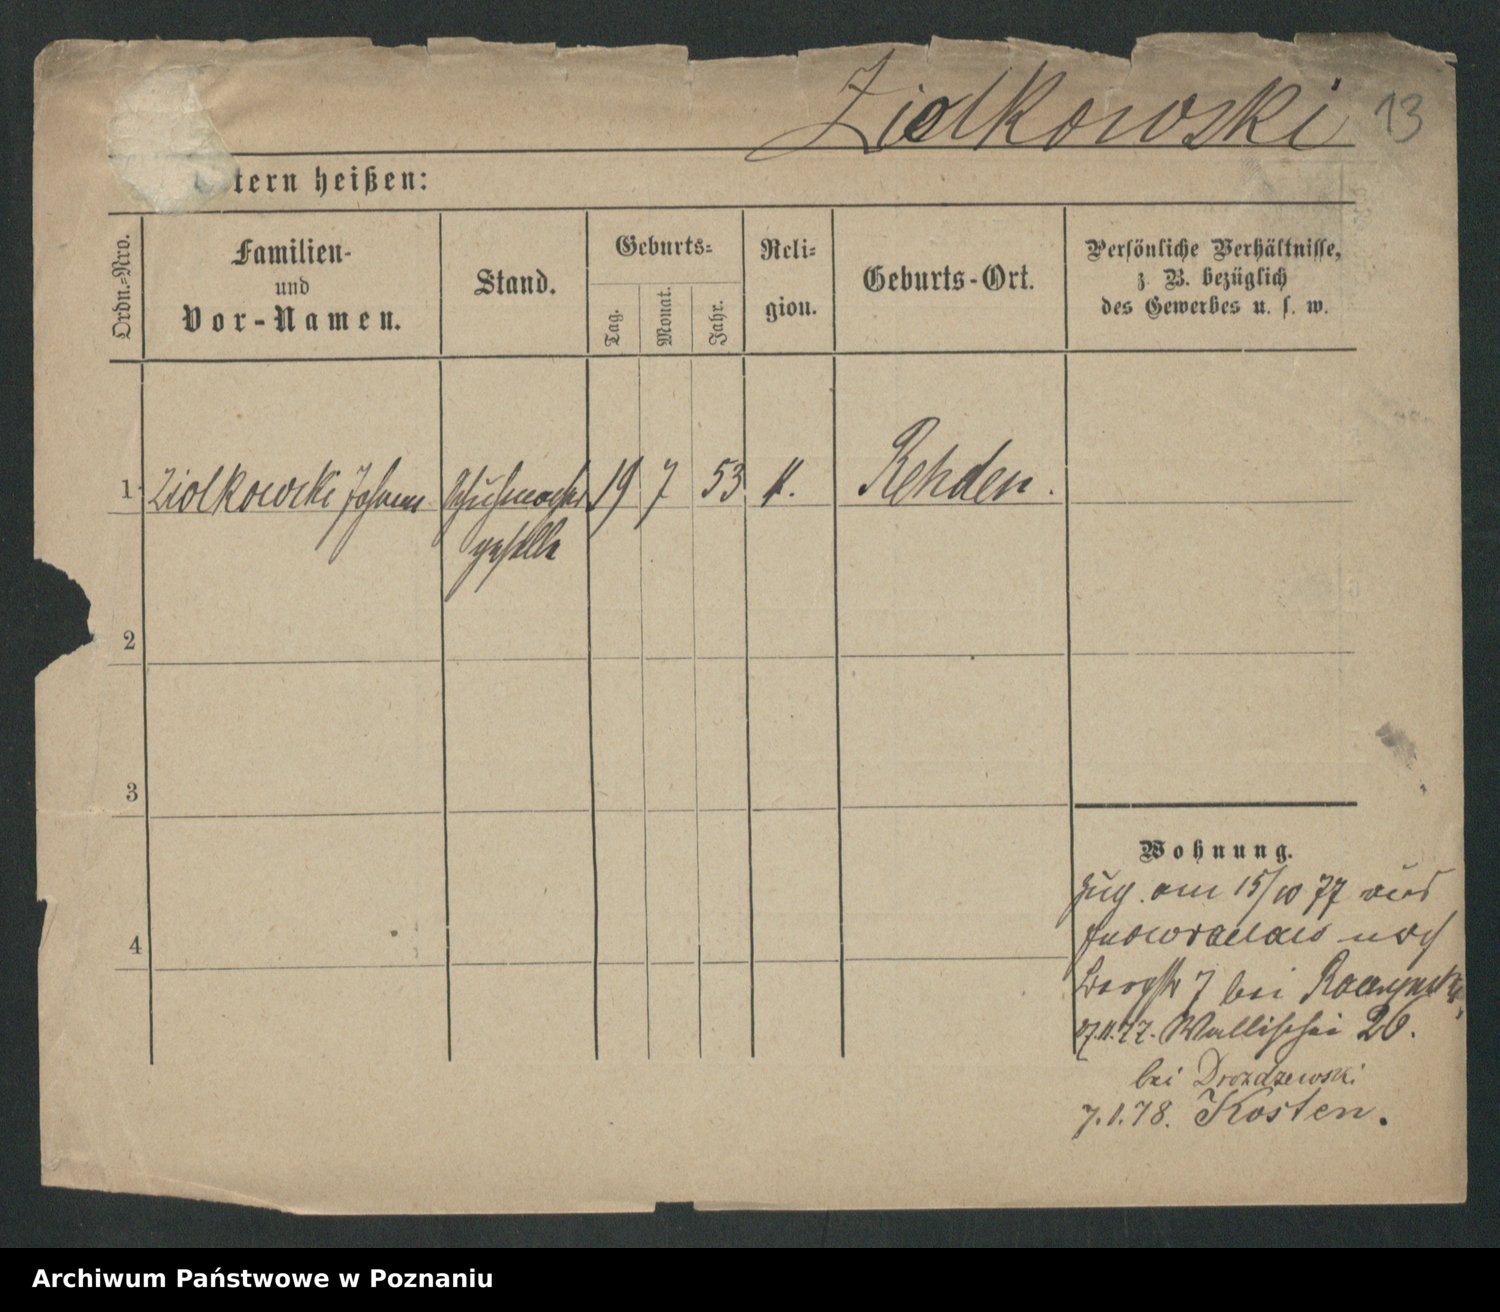 Ziolkowski 13
tern heißen:
Ordn.-Nro.
Familien-
und
Vor-Namen.
Stand.
Geburts-
Tag.
Monat.
Jahr.
Reli-
gion.
Geburts-Ort.
Persönliche Verhältnisse,
z. B. bezüglich
des Gewerbes u. s. w.
1 Ziolkowski Johann Schuhmacher 19 7 53 k. Rehden.
geselle
2
3
4
Wohnung.
Zug. am 15/10 77 aus
Inowraclaw nach
7 bei
27.11.77. Wallischei 26.
bei Drozdzewski
7.1.78. Kosten.
Archiwum Państwowe w Poznaniu